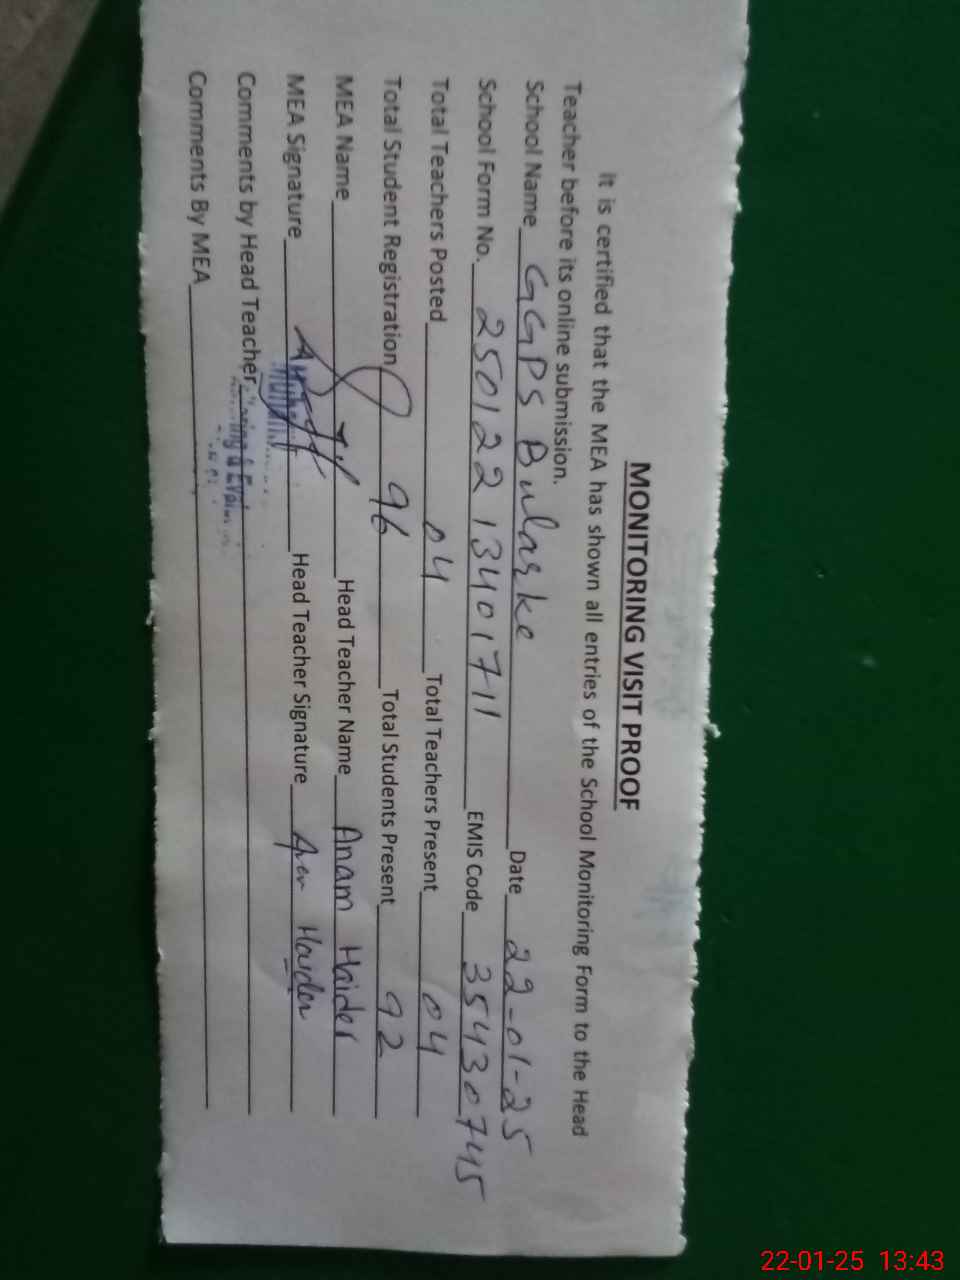 MONITORING VISIT PROOF
It is certified that the MEA has shown all entries of the School Monitoring Form to the Head
Teacher before its online submission.
School Name GGPS Bularke Date 22-01-25
School Form No. 25012213401711 EMIS Code 35430745
Total Teachers Posted 04 Total Teachers Present 04
Total Student Registration 96 Total Students Present 92
MEA Name Head Teacher Name Anam Haider
MEA Signature Head Teacher Signature Haider
Comments by Head Teacher
Comments By MEA
22-01-25 13:43